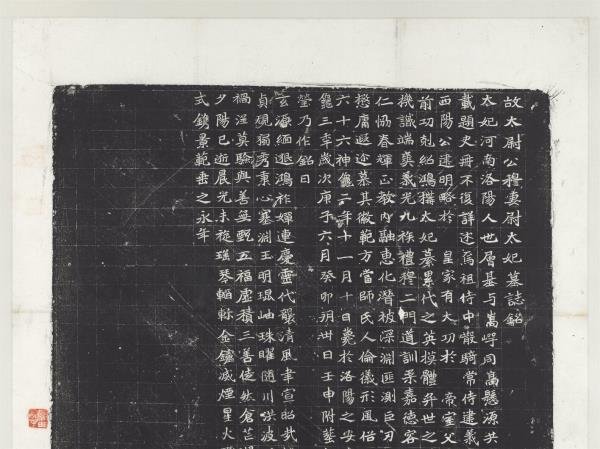 故太尉公穆妻尉太妃墓誌銘
太妃河南洛陽人也層基与嵩岳同高懸源共
載題史冊不復詳述烏祖侍中散騎常侍建義
西陽公建明略於皇家有大功於帝室父
前功剋紹鴻猷太妃綦累代之英摸體弈世之
機識端莫義光九族禮穆二門道訓柔嘉德容
仁協春暉正敏內融惠化潛被深淵匪測巨刃
懋庸遐迩慕其徽範方當師氏人倫儀形風俗
六十六神龜二年十一月十日薨於洛陽之安
龜三年歲次庚子六月癸卯朔卅日壬申附葬
塋乃作銘曰
玄海緬邈鴻祚嬋連慶靈代襲清風聿宣昭
貞規獨秀秉心塞淵王明琨岫珠曜隨川洪波
禍淫莫驗與善無甄五福虛積三善徒然倉芒
夕陽已逝晨光未旋瑤琴輟軫金鑪滅煙星火
式鐫景範垂之永年